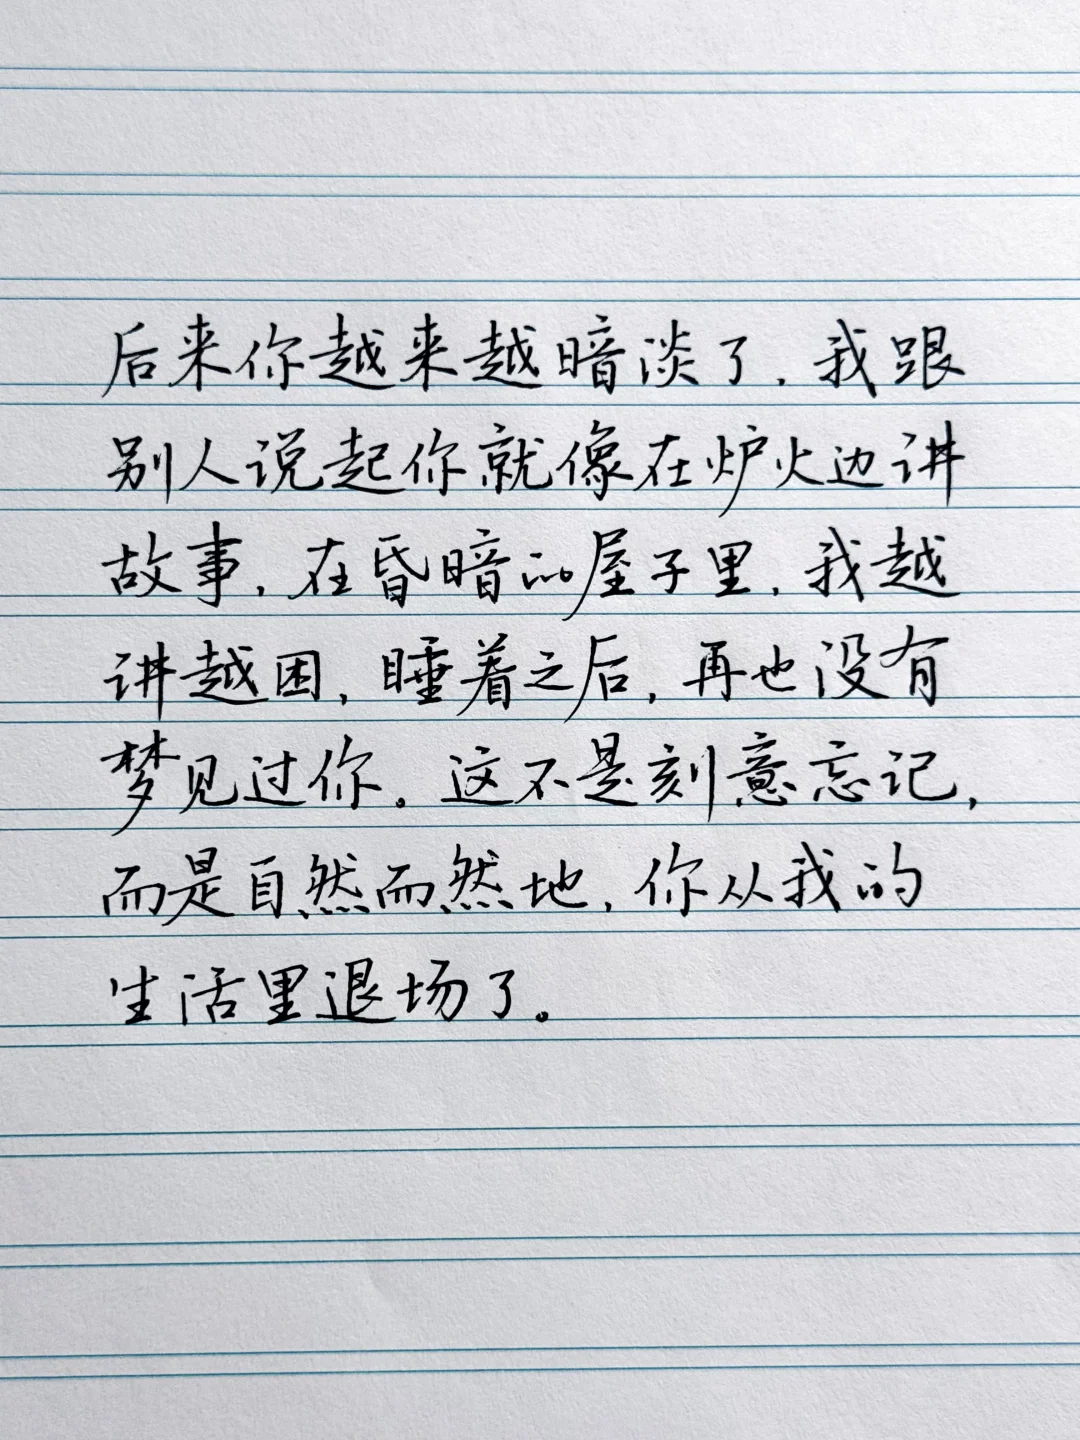 后来你越来越暗淡了，我跟
别人说起你就像在炉火边讲
故事，在昏暗的屋子里，我越
讲越困，睡着之后，再也没有
梦见过你。这不是刻意忘记，
而是自然而然地，你从我的
生活里退场了。